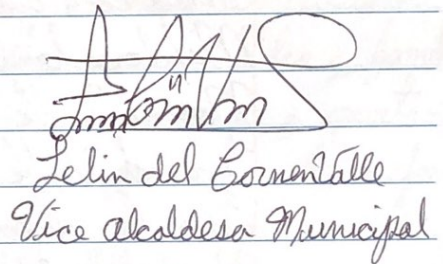 Lelin del Cormen Valle
Vice alcaldesa Municipal